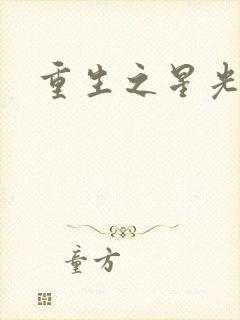 重生之星光
童方